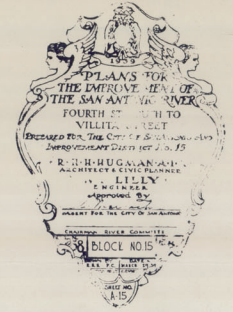 1939
PLANS FOR
THE IMPROVEMENT OF
THE SAN ANTONIO RIVER
FOURTH TO
VILLITA STREET
PREPARED FOR THE CITY OF SAN ANTONIO AND
IMPROVEMENT DISTRICT NO. 15
R·H·H·HUGMAN·A·I·
ARCHITECT & CIVIC PLANNER
LILLY
ENGINEER
Approved By
AGENT FOR THE CITY OF SAN ANTONIO
CHAIRMAN RIVER COMMITTE
38 BLOCK NO.15
DATE
SHEET NO.
A-15